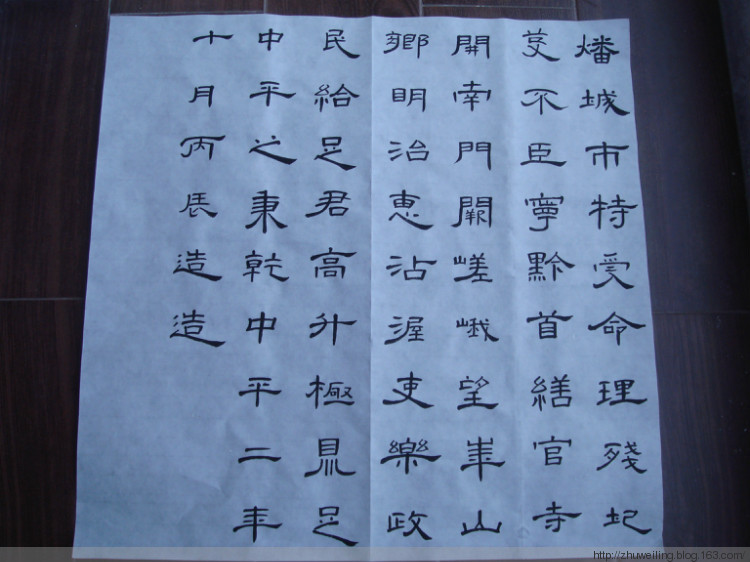 燔城市特受命理殘圮
芟不臣寧黔首繕官寺
開南門闕嵯峨望華山
鄉明治惠沾渥吏樂政
民給足君高升極鼎足
中平之秉乾中平二年
十月丙辰造造
http://zhuweiling.blog.163.com/